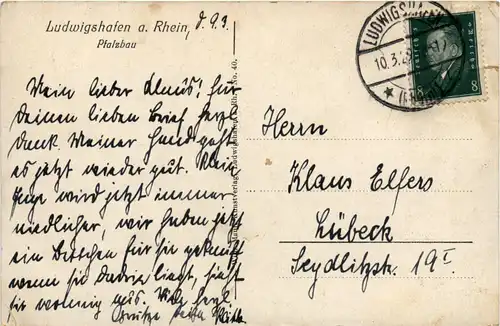 Ludwigshafen a. Rhein, d. 9.3.
Pfalzbau
Mein lieber Klaus! Für
deinen lieben Brief herzl.
Dank. Meiner Hand geht
es jetzt wieder gut. Klein
wird jetzt immer
niedlicher, wir haben jetzt
ein für sie gekauft
wenn sie darin liegt, sieht
sie wonnig aus. Viele herzl.
Grüsse
LUDWIGSHAFEN
10.3.
(RHEIN)
8 8
Herrn
Klaus Elfers
Lübeck
Seydlitzstr. 19 I.